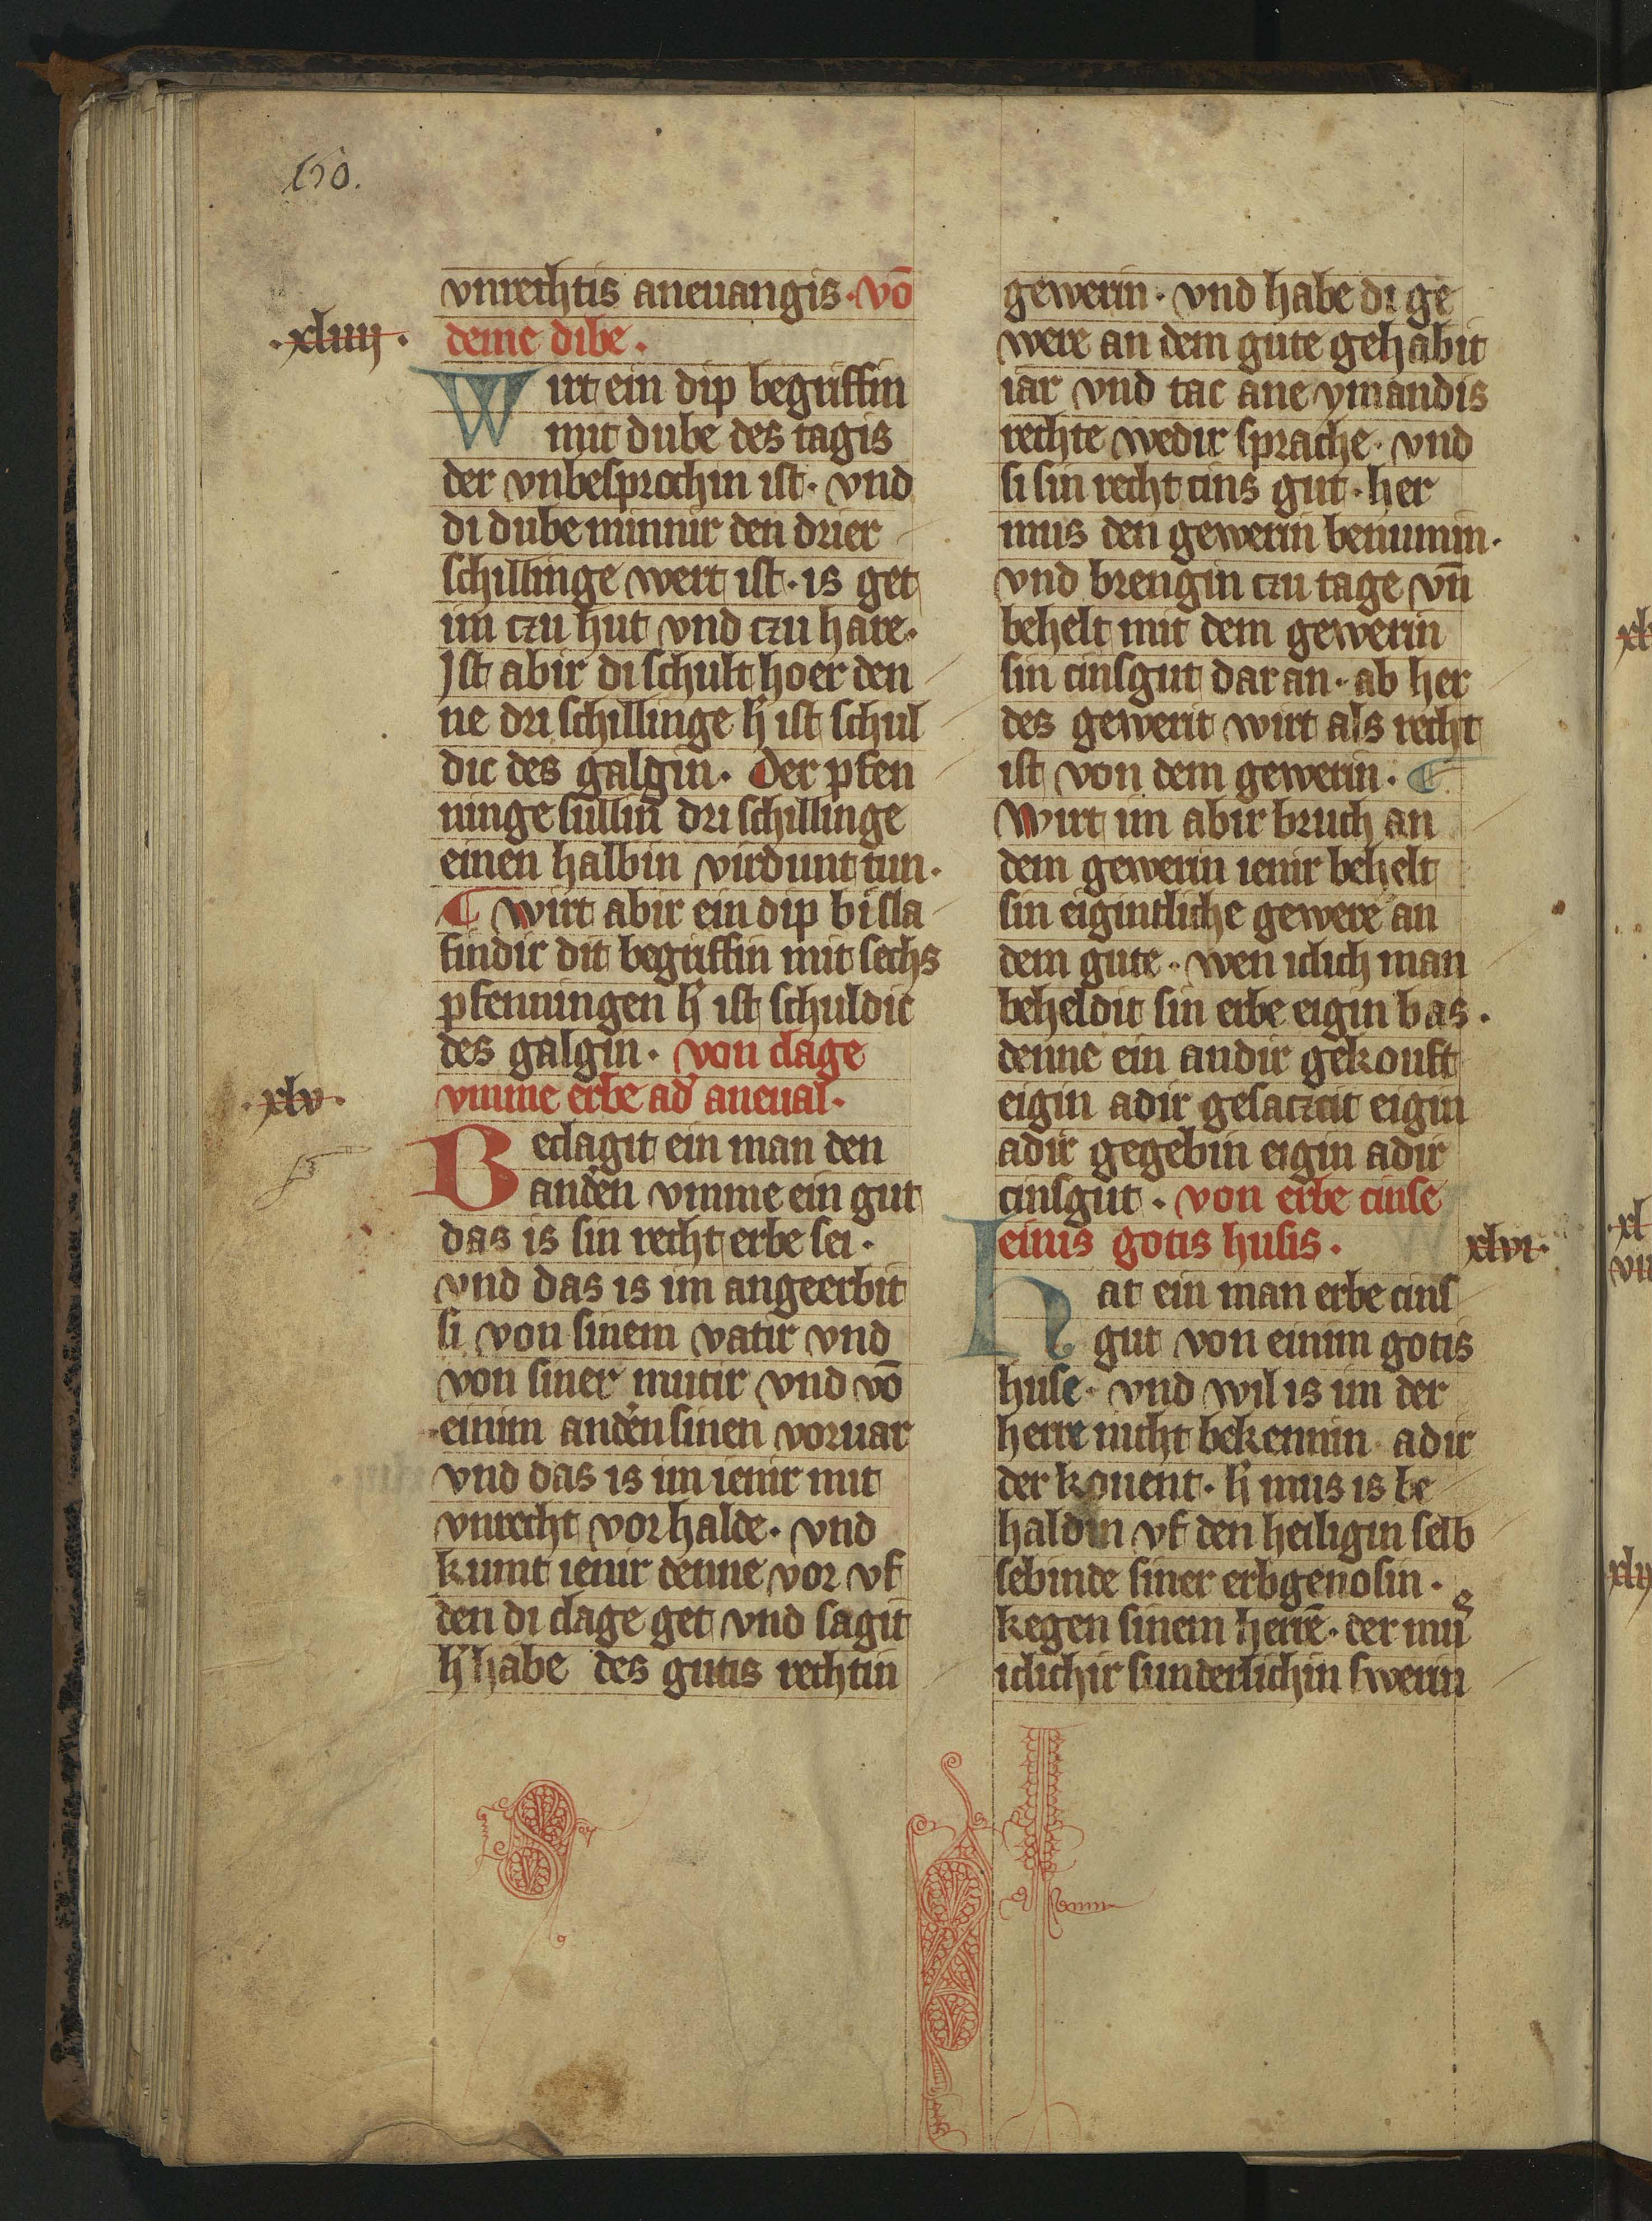 150.
vnrechtis aneuangis · vō
·xliiij· deme dibe ·
Wirt ein dip begriffin
mit dube des tagis
der vnbesprochin ist · vnd
di dube minnir den drier
schillinge wert ist · is get
im czu hut vnd czu hare ·
Ist abir di schult hoer den
ne dri schillinge h' ist schul
dic des galgin · Der pfen
ninge sullin dri schillinge
einen halbin virdunt tun ·
¶ wirt abir ein dip bi sla
findir dit begriffin mit sechs
pfenningen h' ist schuldic
des galgin · von clage
·xlv· vmme erbe ad' aneual ·
Beclagit ein man den
and'en vmme ein gut
das is sin recht erbe sei ·
vnd das is im angeerbit
si von sinem vatir vnd
von siner mutir vnd vō
einim and'en sinen voruar
vnd das is im ienir mit
vnrecht vorhalde · vnd
kumt ienir denne vor vf
den di clage get vnd sagit
h' habe des gutis rechtin
gewerin · vnd habe di ge
were an dem gute gehabit
iar vnd tac ane ymandis
rechte wedir sprache · vnd
si sin recht cins gut · her
mus den gewerin benumin ·
vnd brengin czu tage vn̄
behelt mit dem gewerin
sin cinsgut dar an · ab her
des gewerit wirt als recht
ist von dem gewerin · ¶
Wirt im abir bruch an
dem gewerin ienir behelt
sin eigintliche gewere an
dem gute · wen iclich man
beheldit sin erbe eigin bas ·
denne ein andir gekouft
eigin adir gesatzcit eigin
adir gegebin eigin adir
cinsgut · von erbe cinse
einis gotis husis · xlvi·
Hat ein man erbe cins
gut von einim gotis
huse · vnd wil is im der
herre nicht bekennin adir
der konent · h' mus is be
haldin vf den heiligin selb
sebinde siner erbgenosin ·
kegen sinem herrē · der mus
iclichir sunderlichin swerin